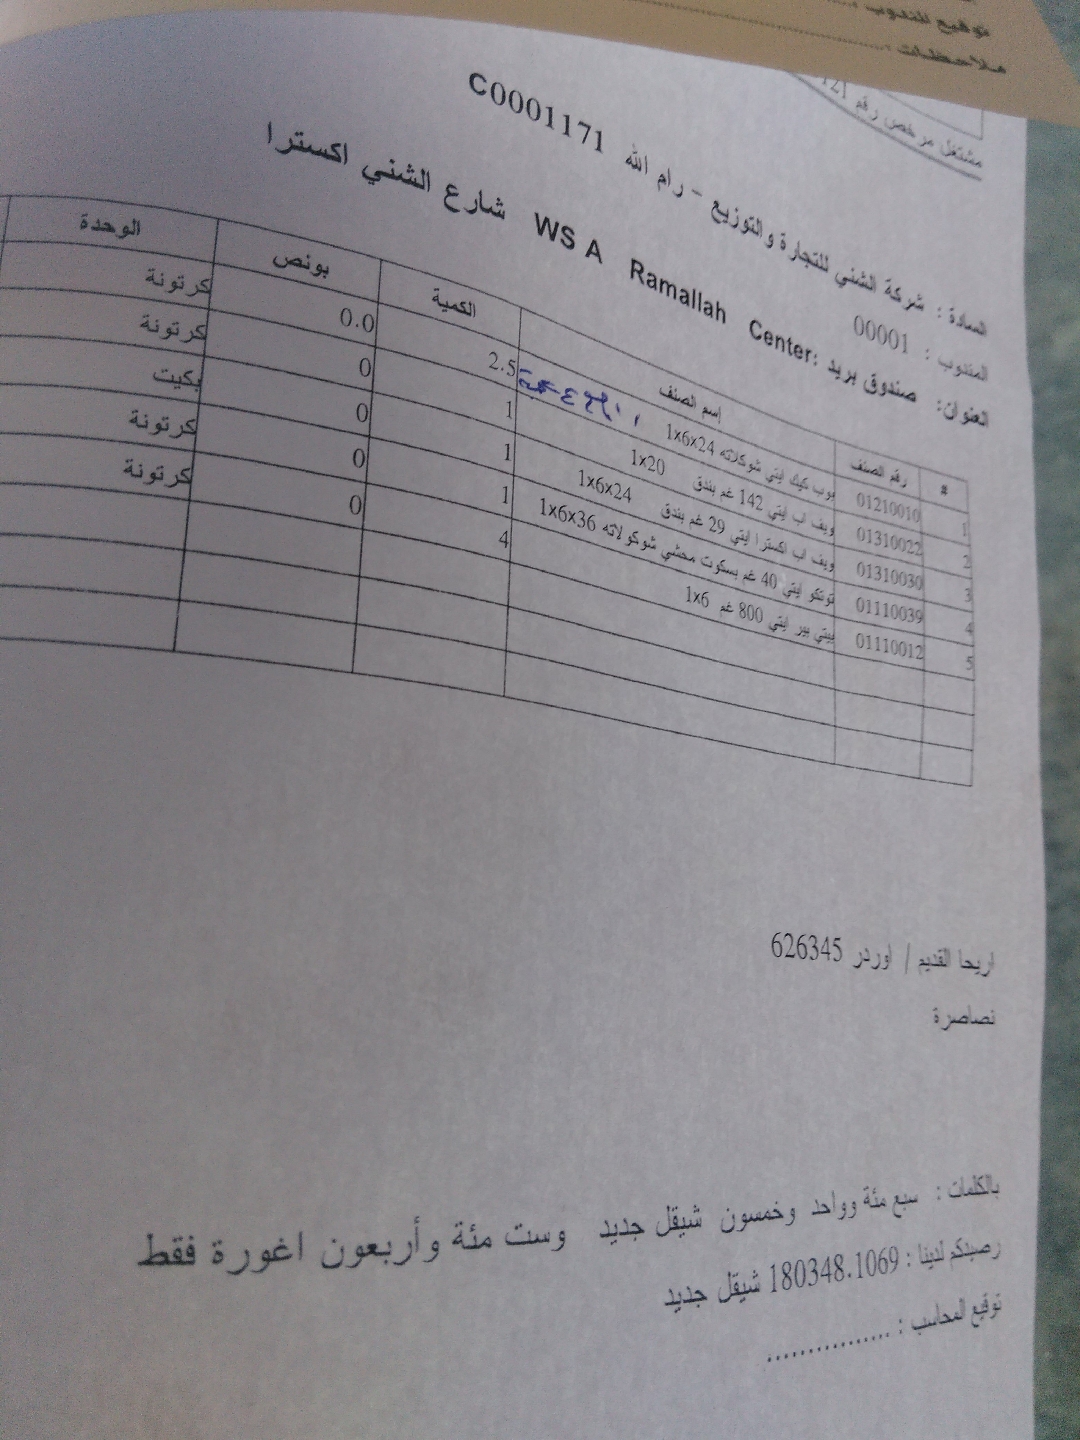 توقيع المندوب :
ملاحظات :
مشتغل مرخص رقم 121
السادة : شركة الشني للتجارة والتوزيع - رام الله C0001171
المندوب : 00001
العنوان: صندوق بريد :WS A Ramallah Center شارع الشني اكسترا
# رقم الصنف إسم الصنف الكمية بونص الوحدة
1 01210010 بوب كيك ايتي شوكلاته 1x6x24 2.5 0.0 كرتونة
2 01310022 ويف اب ايتي 142 غم بندق 1x20 1 0 كرتونة
3 01310030 ويف اب اكسترا ايتي 29 غم بندق 1x6x24 1 0 بكيت
4 01110039 توتكو ايتي 40 غم بسكوت محشي شوكولاته 1x6x36 1 0 كرتونة
5 01110012 بيتي بير ايتي 800 غم 1x6 4 0 كرتونة
اريحا القديم / اوردر 626345
نصاصرة
بالكلمات : سبع مئة وواحد وخمسون شيقل جديد وست مئة وأربعون اغورة فقط
رصيدكم لدينا : 180348.1069 شيقل جديد
توقيع المحاسب : ................